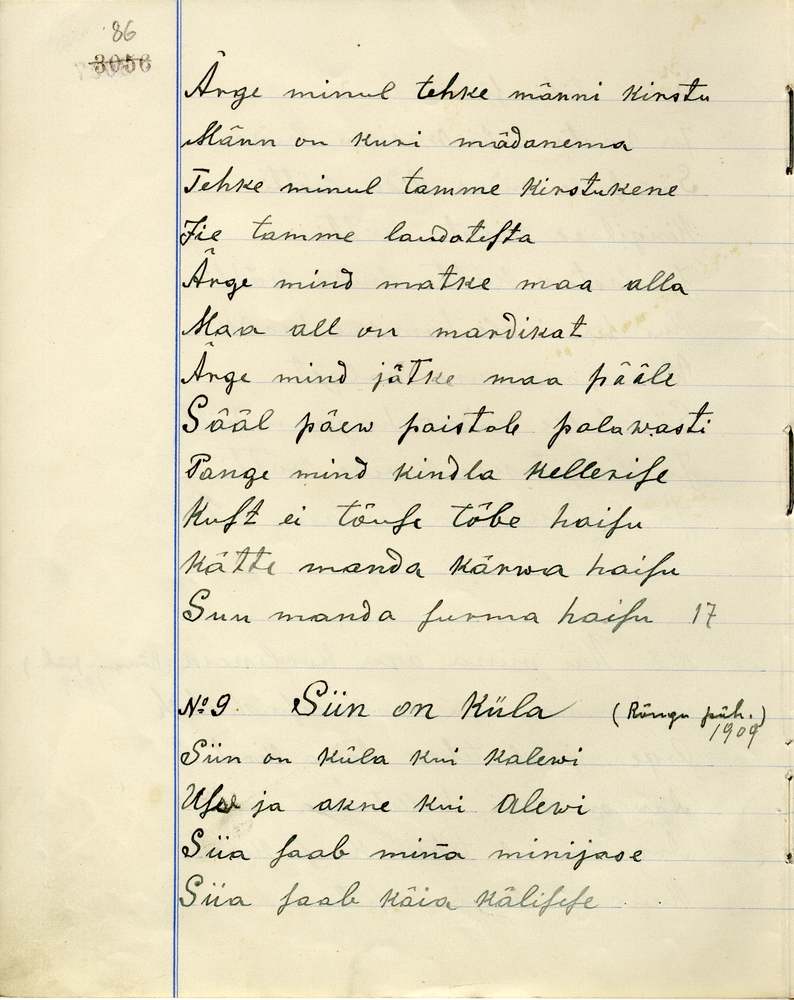 86
3056
Ärge minul tehke männi kirstu
Männ on kuri mädanema
Tehke minul tamme kirstukene
Iie tamme laudatesta
Ärge mind matke maa alla
Maa all on mardikat
Ärge mind jätke maa pääle
Sääl päew paistab palawasti
Pange mind kindla kellerise
Kust ei tõuse tõbe haisu
Kätte manda kärwa haisu
Suu manda surma haisu 17
No 9 Siin on Küla (Rõngu päh.)
1909
Siin on küla kui kalewi
Use ja akne kui alewi
Siia saab mina minijase
Siia saab käia kälisise